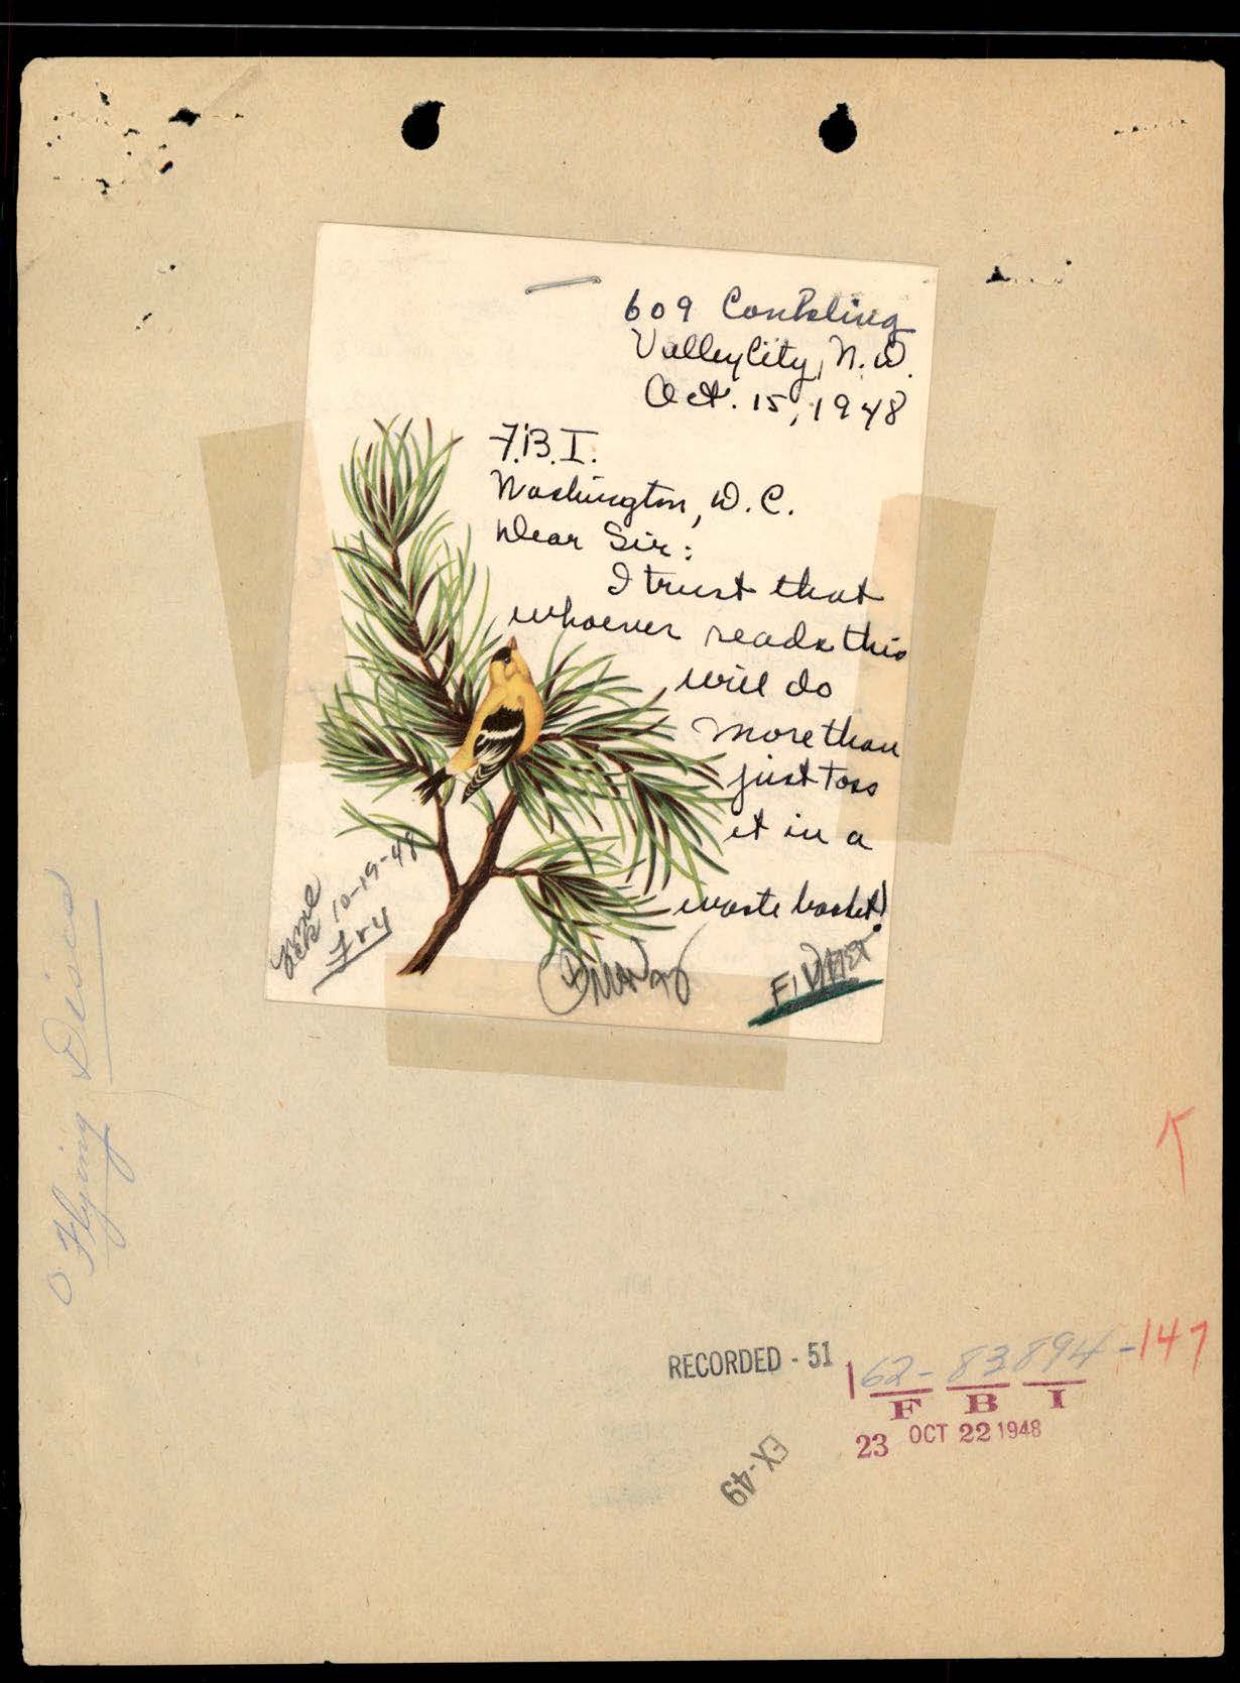 609 Conkling
Valley City, N.D.
Oct. 15, 1948
F.B.I.
Washington, D.C.
Dear Sir:
I trust that
whoever reads this
will do
more than
just toss
it in a
waste basket!
10-19-48
Flying Discs
K
RECORDED - 51
162-83894-147
F B I
23 OCT 22 1948
EX-49